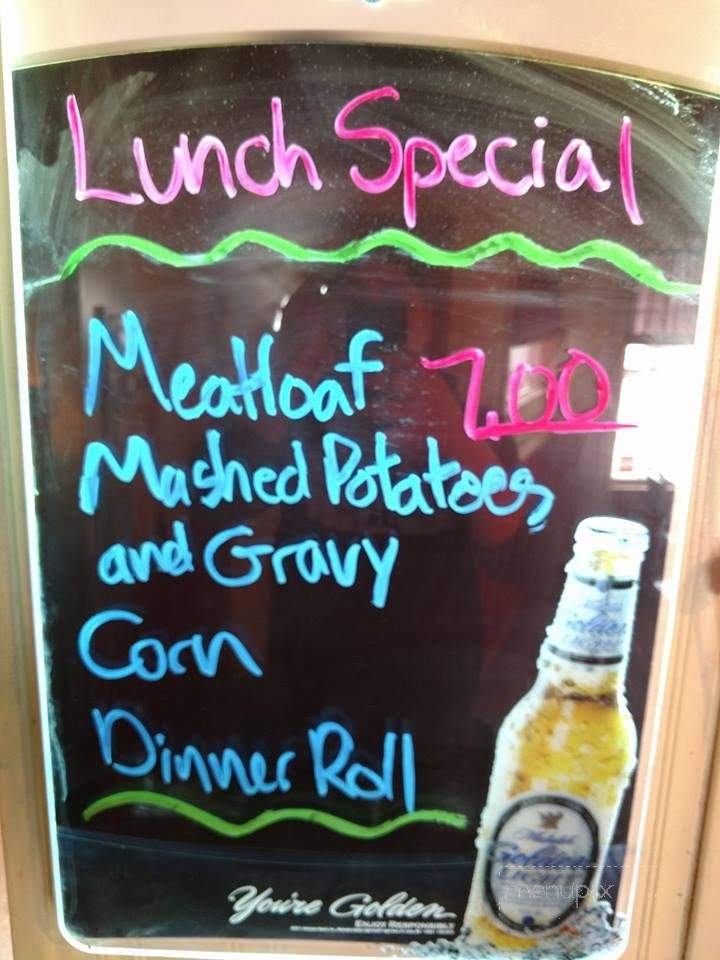 Lunch Special
Meatloaf 7.00
Mashed Potatoes
and Gravy
Corn
Dinner Roll
Golden
LIGHT
Michelob
Golden
LIGHT
menupix
You're Golden.
ENJOY RESPONSIBLY